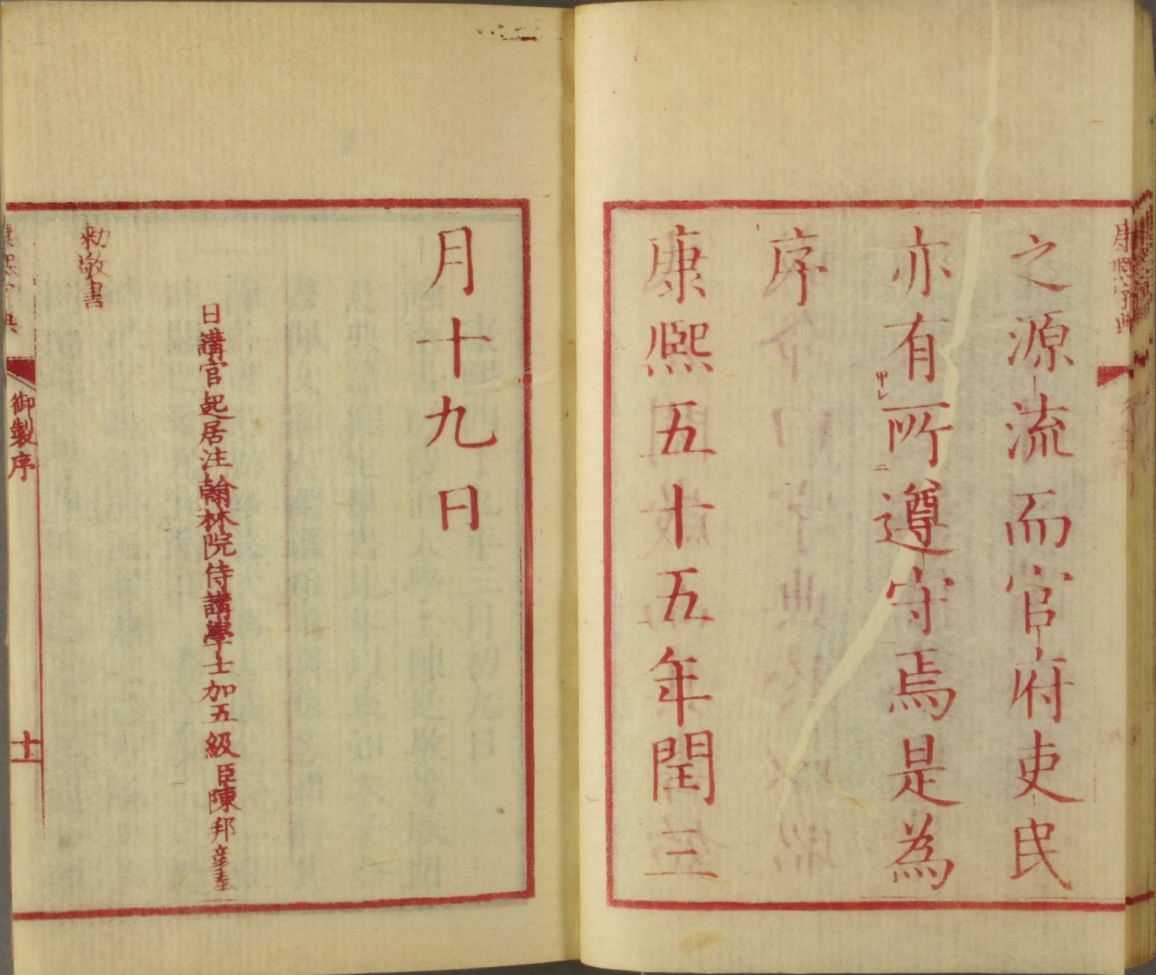 之源流而官府吏民
亦有所遵守焉是為
序
康熙五十五年閏三
月十九日
日講官起居注翰林院侍講學士加五級臣陳邦彥奉
勅敬書
康熙字典
御製序
十一